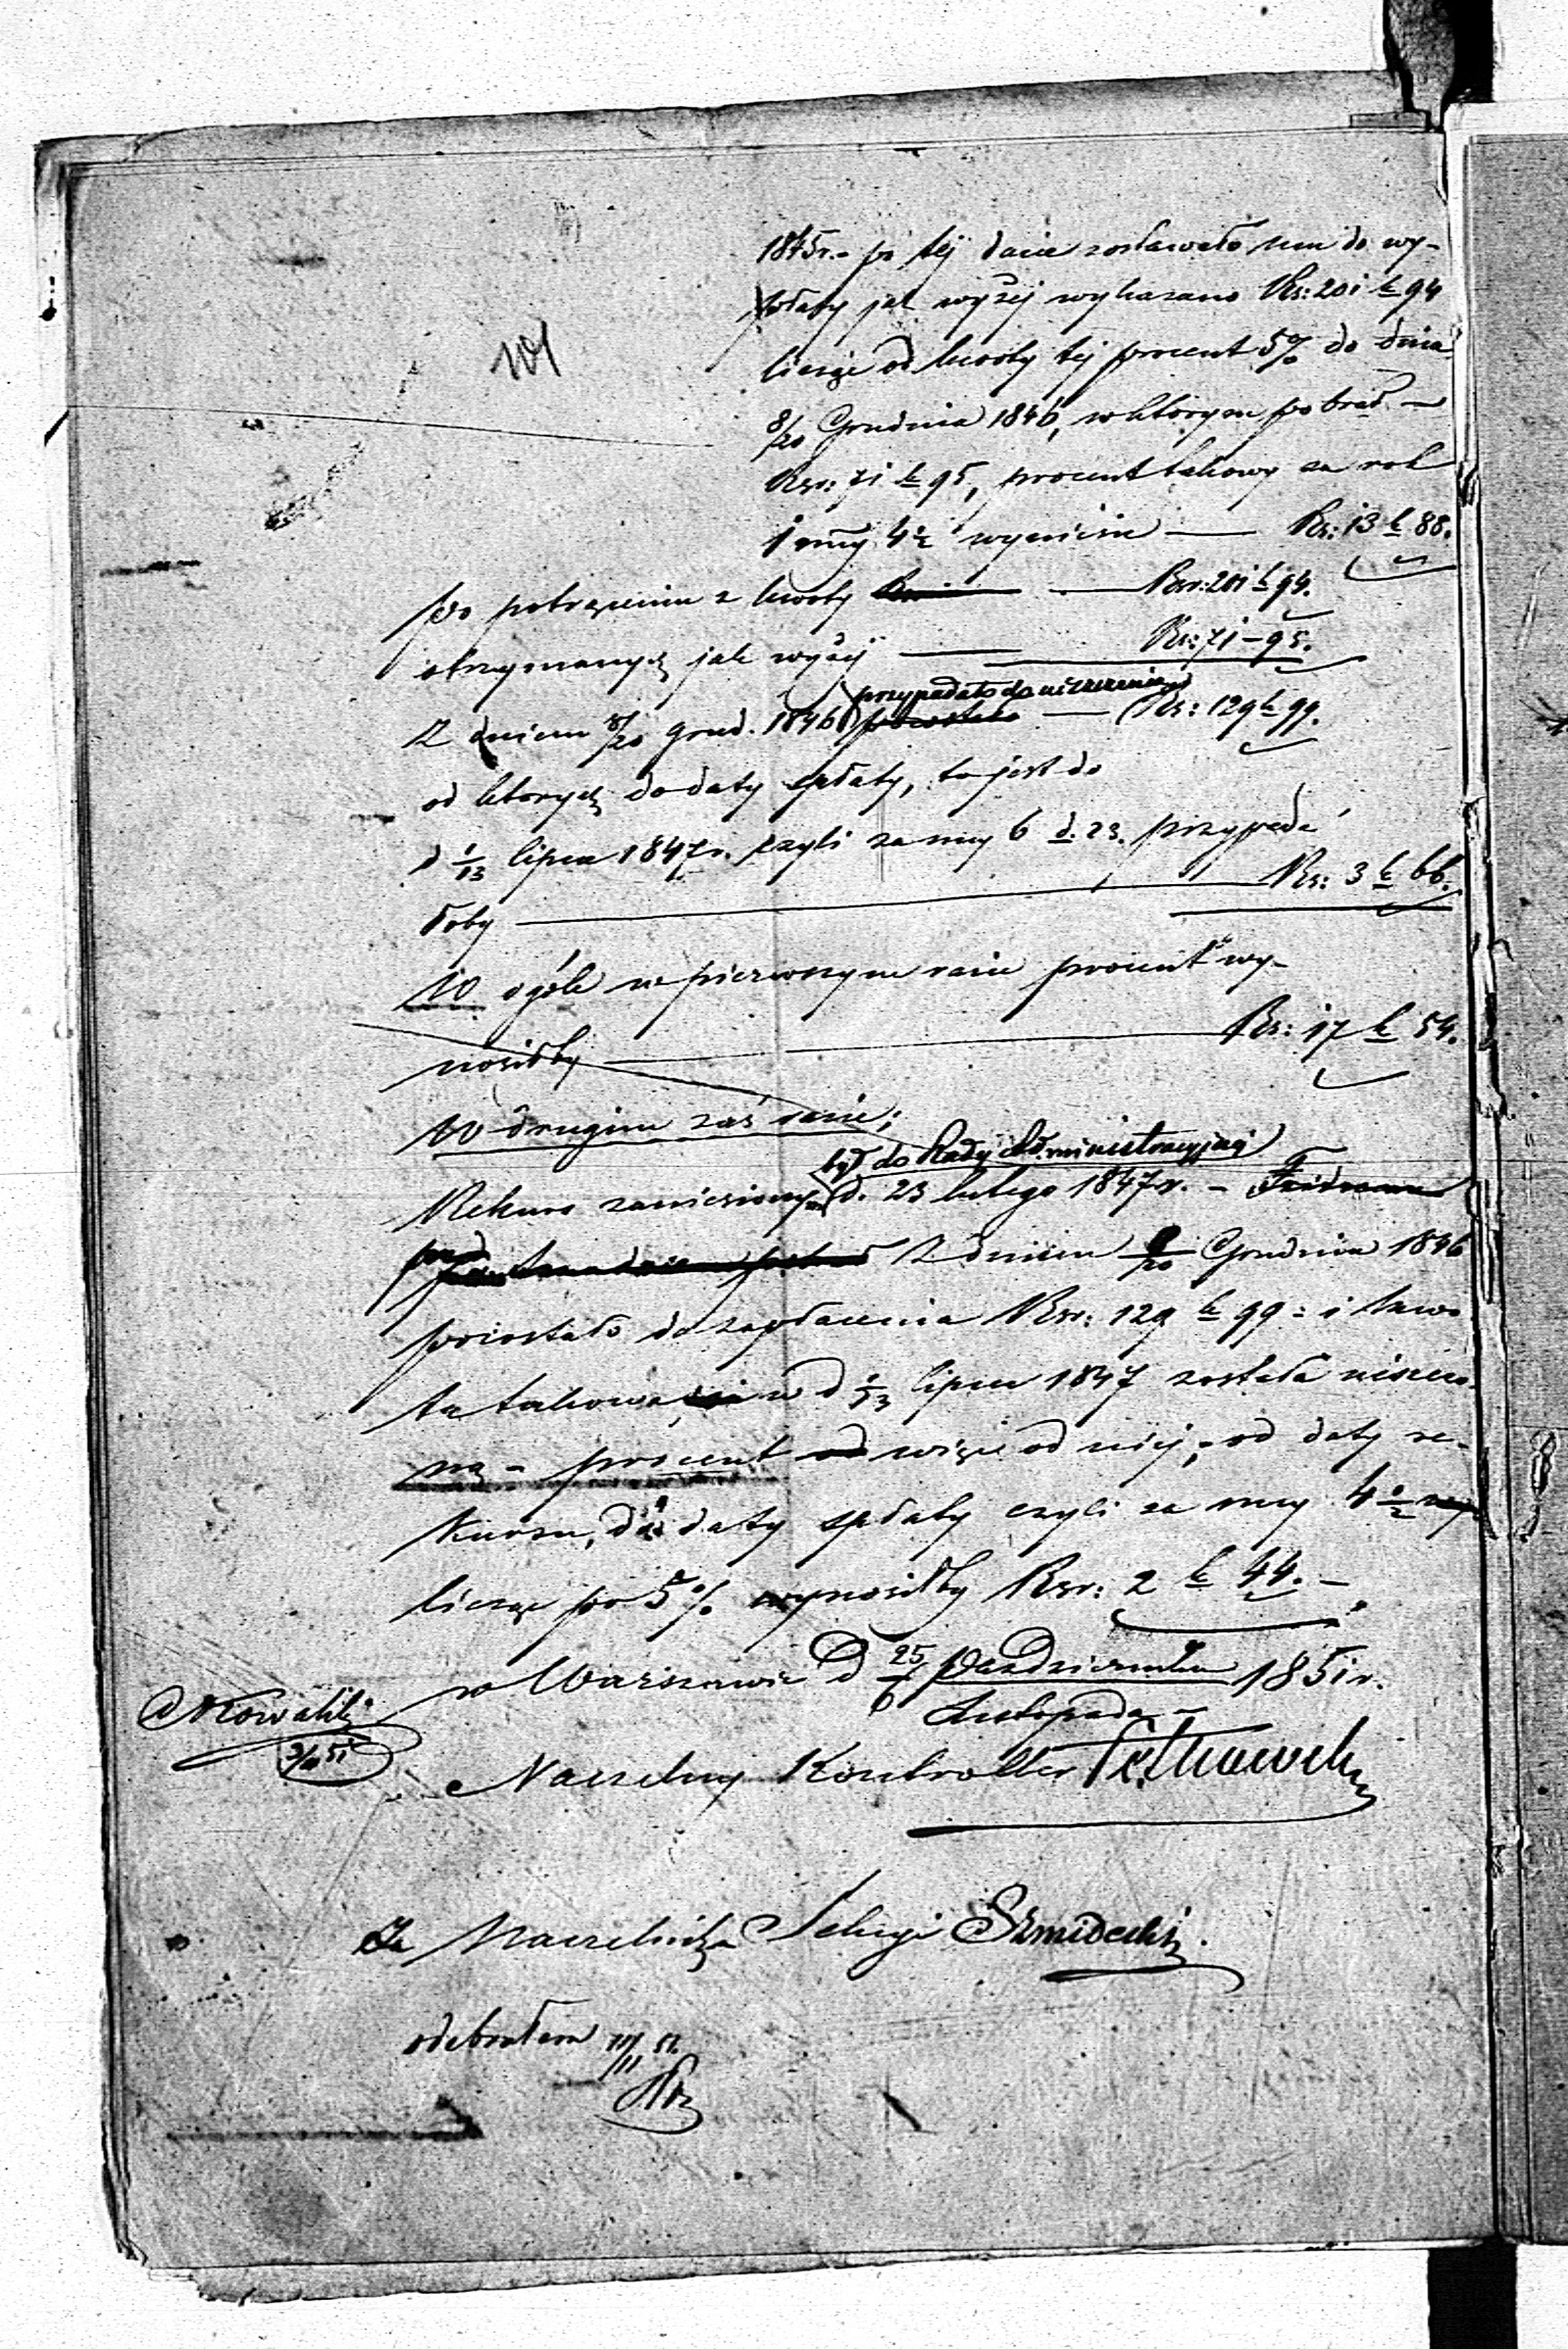 1845r. – po tej dacie zostawało mu do wy-
płaty jak wyżej wykazano Rs: 201 k 94
licząc od kwoty tej procent 5% do dnia
8/20 Grudnia 1846, w którym pobrał —
Rsr: 71 k 95, procent takowy za rok
1 mcy 4½ wyniesie — Rs: 13 k 88.
po potrąceniu z kwoty — Rsr: 201 k 94.
otrzymanych jak wyżej — Rs: 71 – 95.
przypadało do uiszczenia
Z dniem 8/20 grud. 1846 — Rs: 129 k 99.
od których do daty spłaty, to jest do
d 1/13 lipca 1847r. czyli za mcy 6 d. 23. przypada
łoby — Rs: 3 k 66.
W ogóle w pierwszym razie procent wy-
nosiłby — Rs: 17 k 54.
W drugim zaś razie;
był do Rady Administracyjnej
Rekurs zaniesiony d. 23 lutego 1847r. –
Z dniem 8/20 Grudnia 1846
pozostało do zapłacenia Rsr: 129 k 99 – i kwo
ta takowa w d 1/13 lipca 1847 została uiszczo-
ną – procent więc od niej, od daty re-
kursu, do daty spłaty czyli za mcy 4½
licząc po 5% wynosiłby Rsr: 2 k 44. –
w Warszawie d 25/6 Października/Listopada 1851r.
Naczelny Kontroller
Za Naczelnika Sekcyi Szmidecki.
odebrałem